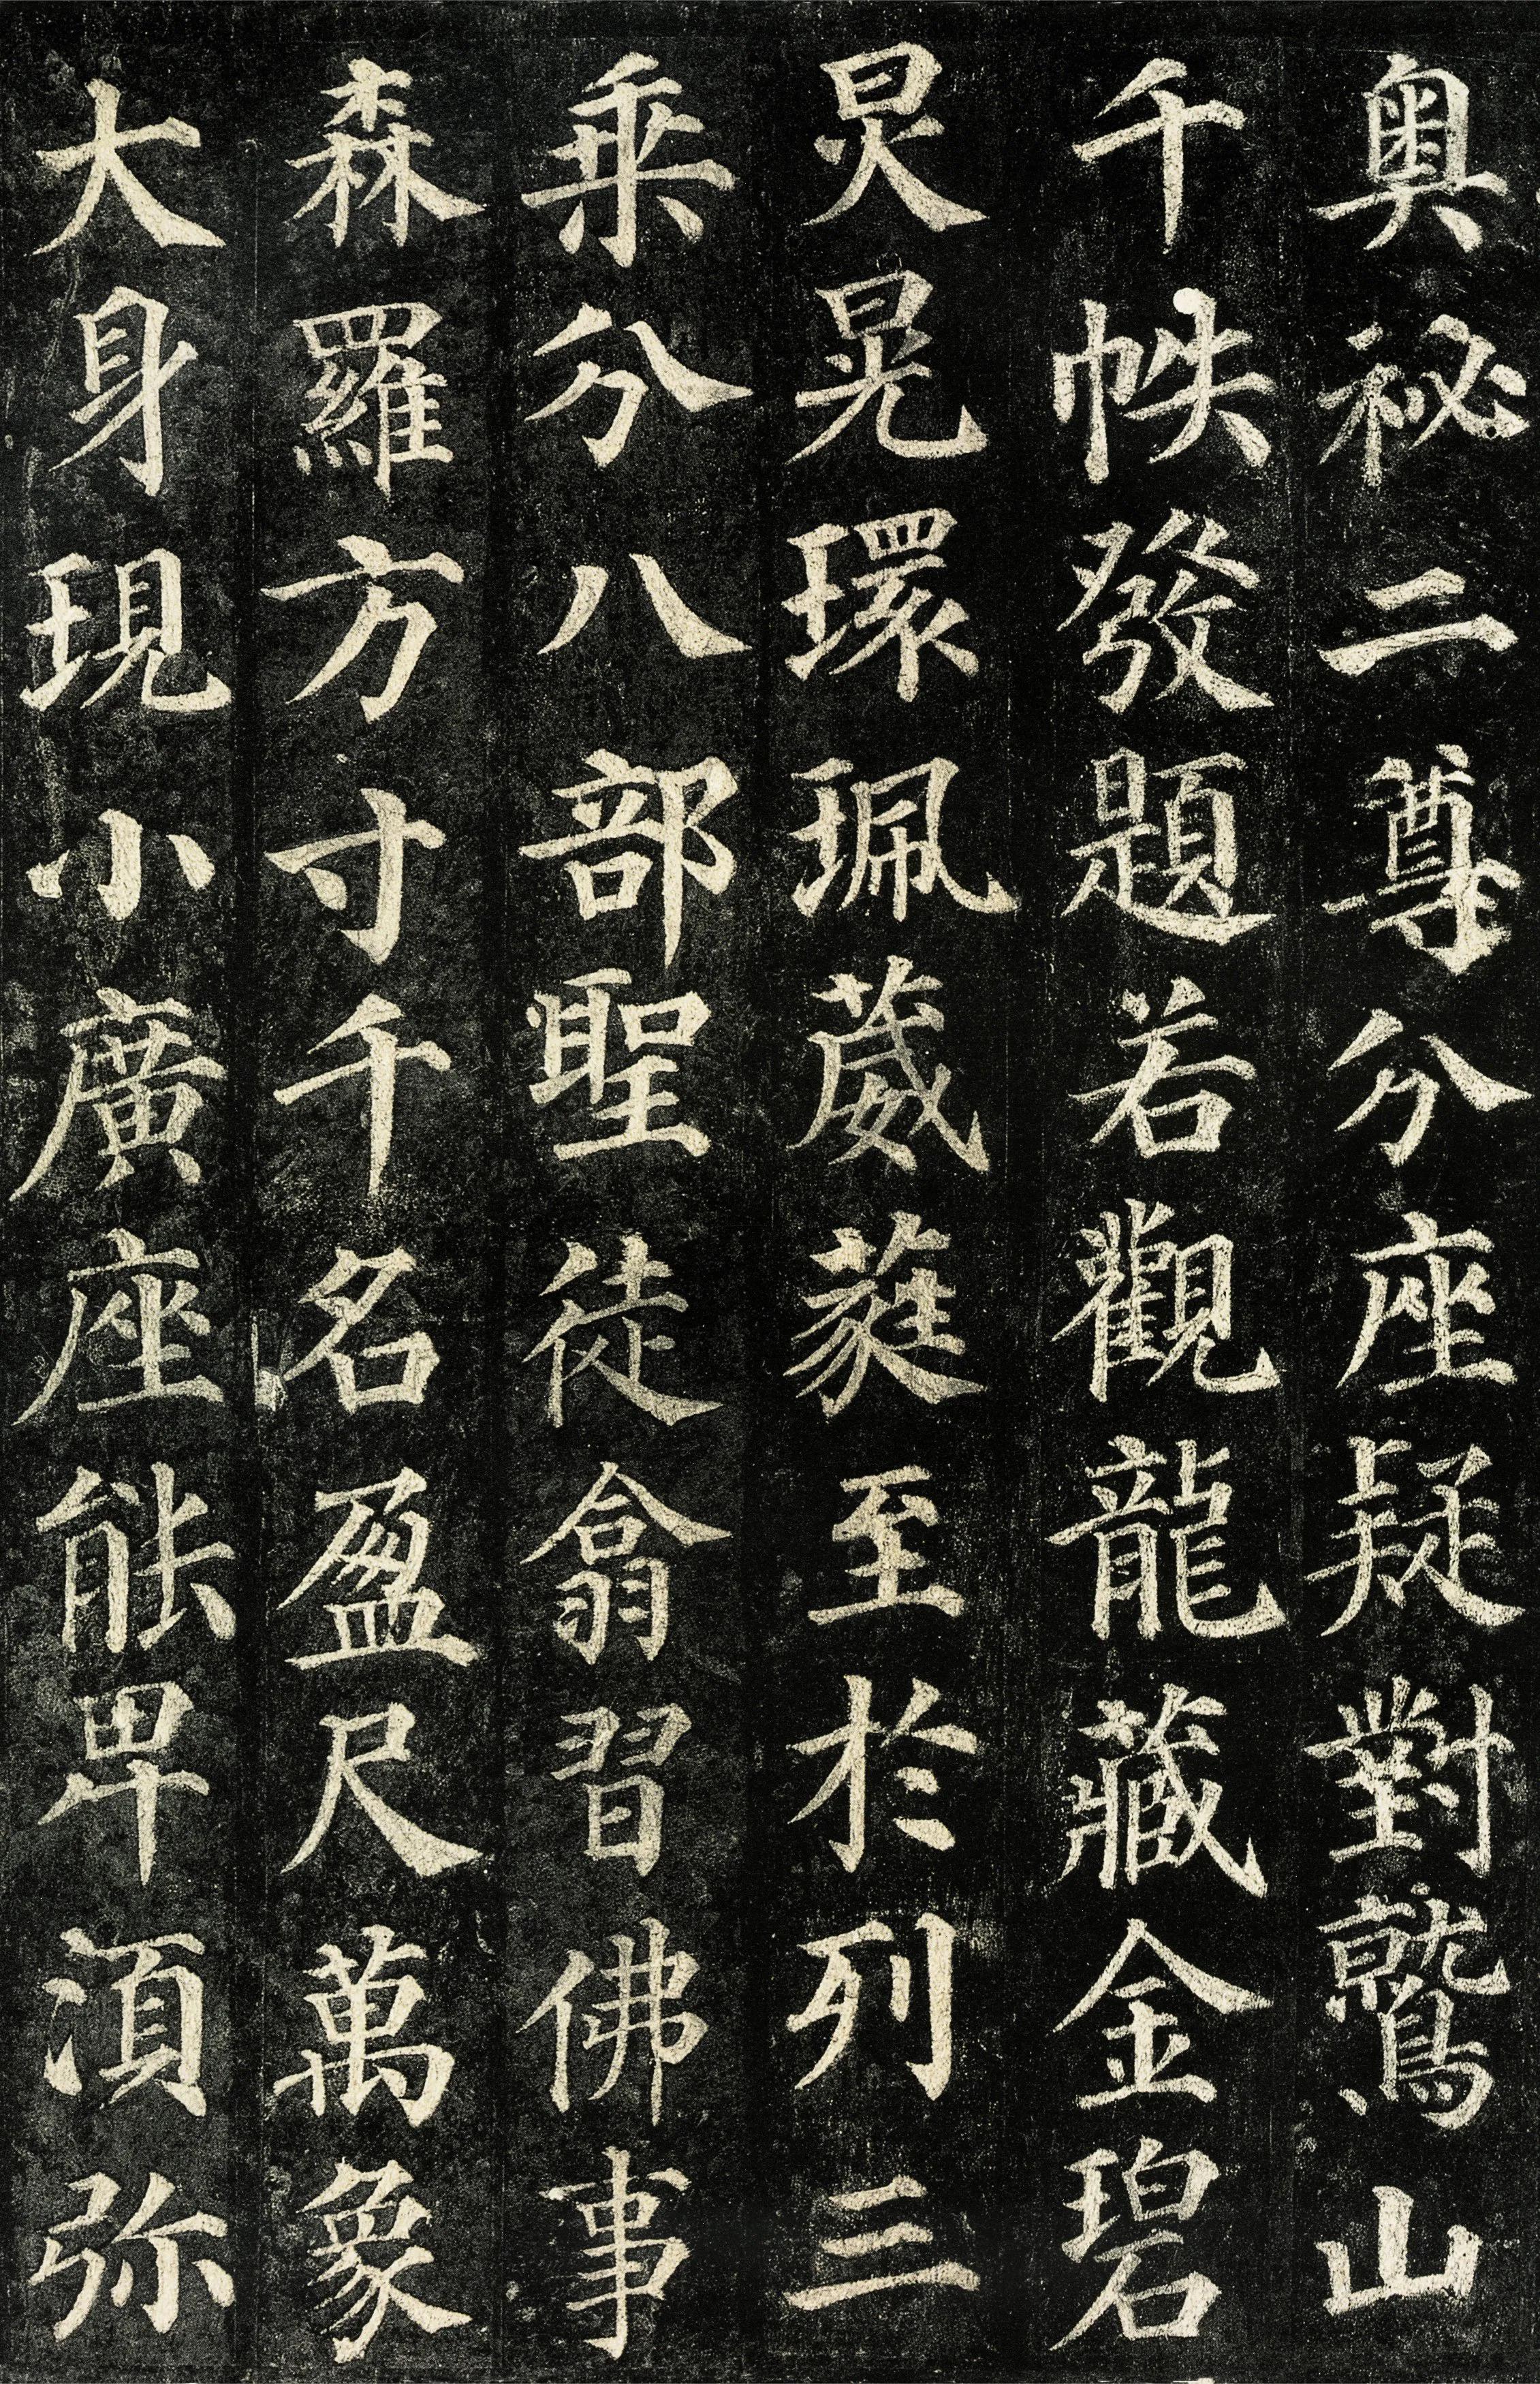 奥祕二尊分座疑對鷲山
千帙發題若觀龍藏金碧
炅晃環珮葳蕤至於列三
乘分八部聖徒翕習佛事
森羅方寸千名盈尺萬象
大身現小廣座能卑湏弥